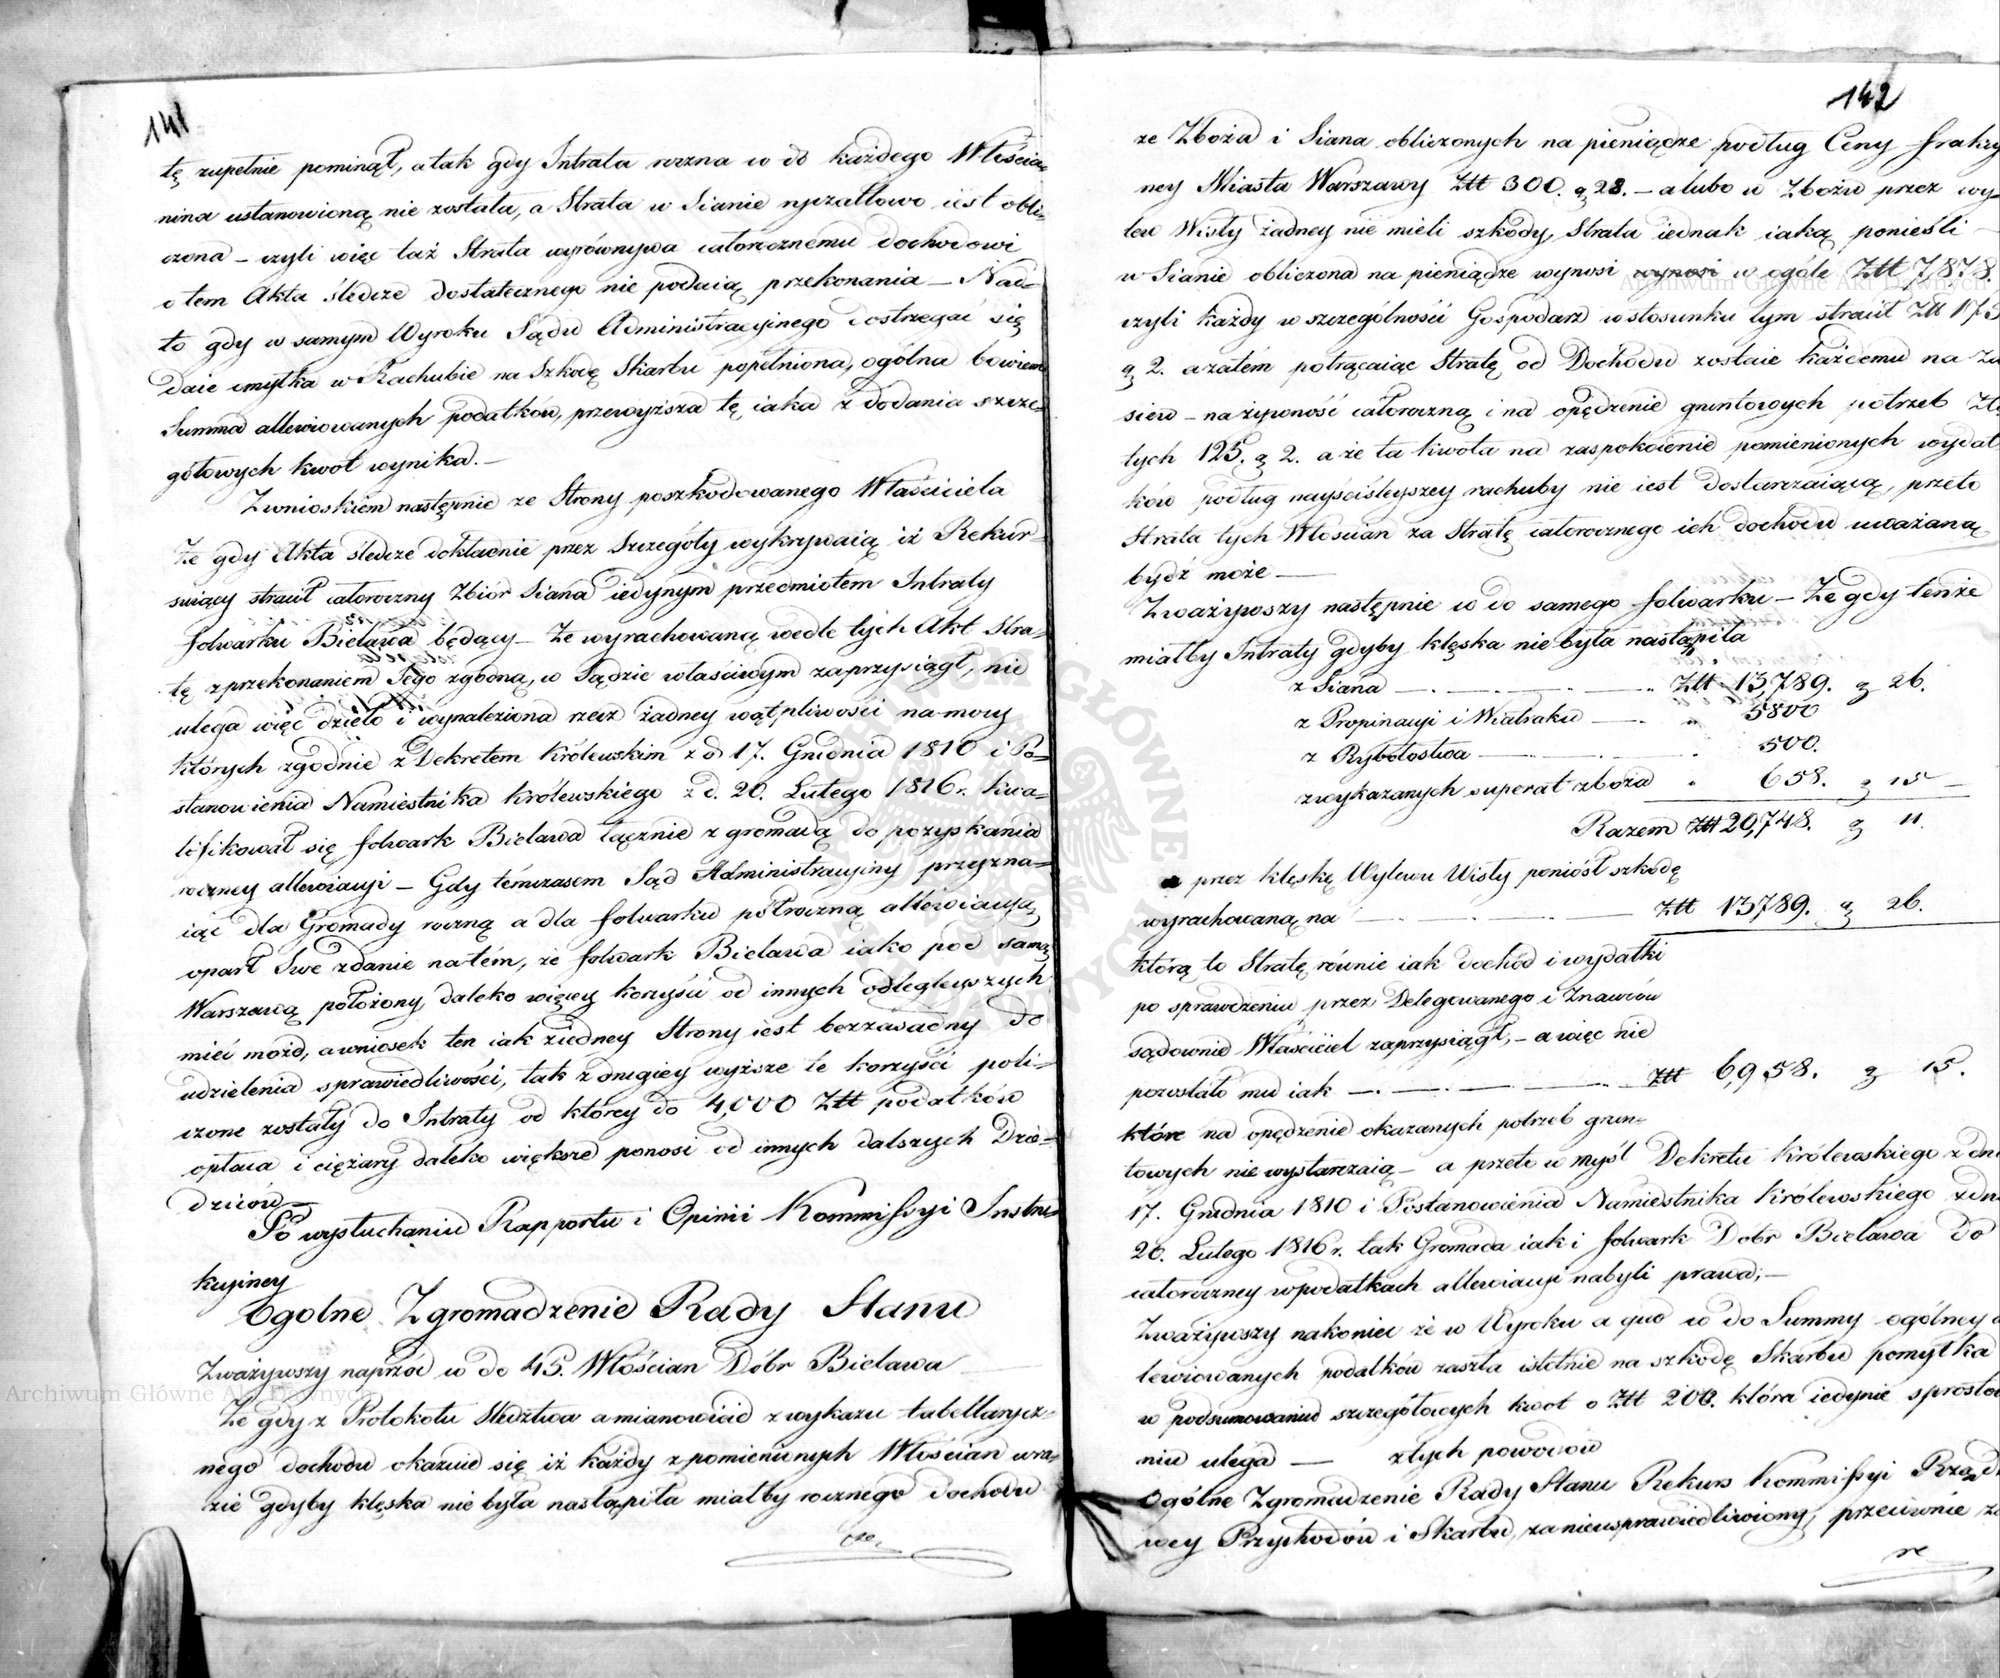 141
tę zupełnie pominął, a tak gdy Intrata roczna w do każdego Włościa=
nina ustanowioną nie została, a Strata w Sianie ryczałtowo iest obli=
czona – czyli więc taż Strata wyrównywa całorocznemu dochodowi
o tem Akta śledcze dostatecznego nie podaią przekonania – Nad=
to gdy w samym Wyroku Sądu Administracyjnego dostrzegać się
daie omyłka w Rachubie na Szkodę Skarbu popełniona, ogólna bowiem
Summa allewiowanych podatków, przewyższa tę iaka z dodania szcze=
gółowych kwot wynika. –
Z wnioskiem następnie ze Strony poszkodowanego Właściciela
Że gdy Akta śledcze dokładnie przez Szczegóły wykrywaią iż Rekur=
suiący stracił całoroczny Zbiór Siana iedynym przedmiotem Intraty
folwarku Bielawa będący – Że wyrachowaną wedle tych Akt Stra=
tę z przekonaniem Jego zgodną, w Sądzie właściwym zaprzysiągł, nie
ulega więc dzieło i wynaleziona rzecz żadney wątpliwości na mocy
których zgodnie z Dekretem Królewskim z d 17. Grudnia 1810 i Po=
stanowienia Namiestnika Królewskiego z d. 20. Lutego 1816 r. kwa=
lifikował się folwark Bielawa łącznie z gromadą do pozyskania
roczney allewiacyi – Gdy témczasem Sąd Administracyiny przyzna=
iąc dla Gromady roczną a dla folwarku półroczną allewiacyą,
oparł Swe zdanie na tém, że folwark Bielawa iako pod samą
Warszawą położony daleko więcey korzyści od innych odległeyszych
mieć może, a wniosek ten iak z iedney Strony iest bezzasadny do
udzielenia sprawiedliwości, tak z drugiey wyższe te korzyści poli=
czone zostały do Intraty od którey do 4,000 Złt podatków
opłaca i ciężary daleko większe ponosi od innych dalszych Dzie=
dziców –
Po wysłuchaniu Rapportu i Opinii Kommissyi Instru=
kcyiney
Ogolne Zgromadzenie Rady Stanu
Zważywszy naprzód w do 45. Włościan Dóbr Bielawa
Że gdy z Protokołu Sledztwa a mianowicie z wykazu tabellarycz=
nego dochodu okazuie się iż każdy z pomienionych Włościan w ra=
zie gdyby klęska nie była nastąpiła miałby rocznego dochodu
ze
142
ze Zboża i Siana obliczonych na pieniądze podług Ceny frakcy
ney Miasta Warszawy Złt 300. g 28. – a lubo w Zbożu przez wy=
lew Wisły żadney nie mieli szkody, Strata iednak iaką ponieśli –
w Sianie obliczona na pieniądze wynosi wynosi w ogóle Złt 7,878.
czyli każdy w szczególności Gospodarz w stosunku tym stracił Złt 175
g 2. a zatém potrącaiąc Stratę od Dochodu zostaie każdemu na Za
siew – na żywność całoroczną i na opędzenie gruntowych potrzeb Zło
tych 125. g 2. a że ta kwota na zaspokoienie pomienionych wydat
ków podług nayściśleyszey rachuby nie iest dostarczaiącą, przeto
Strata tych Włościan za Stratę całorocznego ich dochodu uważaną
bydź może –
Zważywszy następnie w do samego folwarku – Że gdy tenże
miałby Intraty gdyby klęska nie była nastąpiła
z Siana – Złt 13,789. g 26.
z Propinacyi i Wiatraku – " 5800
z Rybołostwa – 500.
z wykazanych superat zboża " 658. g 15 –
Razem Złt 20,748. g 11.
a przez klęskę Wylewu Wisły poniósł szkodę
wyrachowaną na – Złt 13789. g 26.
którą to Stratę równie iak dochód i wydatki
po sprawdzeniu przez Delegowanego i Znawców
sądownie Właściciel zaprzysiągł, – a więc nie
pozostało mu iak – Złt 6,958. g 15.
które na opędzenie okazanych potrzeb grun=
towych nie wystarczaią – a przeto w myśl Dekretu Królewskiego z dni
17. Grudnia 1810 i Postanowienia Namiestnika Królewskiego z dn
20. Lutego 1816 r. tak Gromada iak i folwark Dóbr Bielawa do
całoroczney w podatkach allewiacyi nabyli prawa; –
Zważywszy nakoniec że w Wyroku a quo w do Summy ogólney a
lewiowanych podatków zaszła istotnie na szkodę Skarbu pomyłka
w podsumowaniu szczegółowych kwot o Złt 200. która iedynie sprosto
niu ulega – z tych powodów
Ogólne Zgromadzenie Rady Stanu Rekurs Kommissyi Rząd
wey Przychodów i Skarbu, za nieusprawiedliwiony, przeciwnie za
re
Archiwum Główne Akt Dawnych
Archiwum Główne Akt Dawnych